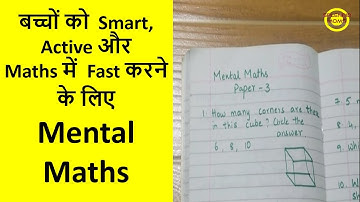 बच्चों को Smart,
Active और
Maths में Fast करने
के लिए
Mental
Maths
Mental Maths
Paper - 3
1. How many corners are there
in this cube? Circle the
answer
6, 8, 10
7. 5
8. 4,
9. Wh
10. W
sh